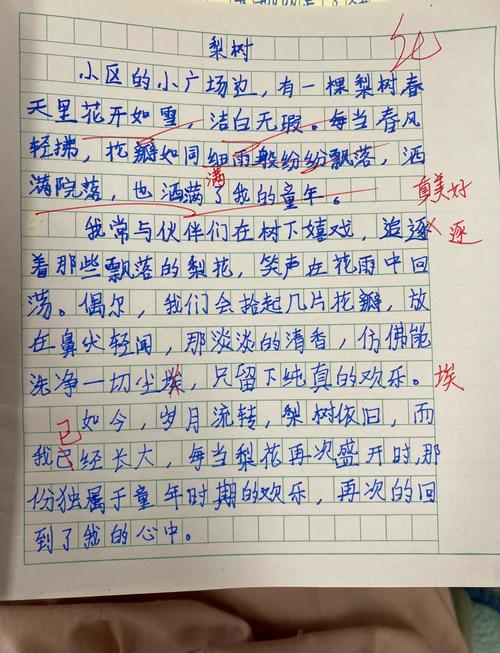 梨树
小区的小广场边，有一棵梨树春
天里花开如雪，洁白无瑕。每当春风
轻拂，花瓣如同细雨般纷纷飘落，洒
满院落，也洒满了我的童年。
满
真美好
我常与伙伴们在树下嬉戏，追逐
逐
着那些飘落的梨花，笑声在花雨中回
荡。偶尔，我们会拾起几片花瓣，放
在鼻尖轻闻，那淡淡的清香，仿佛能
洗净一切尘埃，只留下纯真的欢乐。
埃
如今，岁月流转，梨树依旧，而
已
我已经长大，每当梨花再次盛开时，那
份独属于童年时期的欢乐，再次的回
到了我的心中。